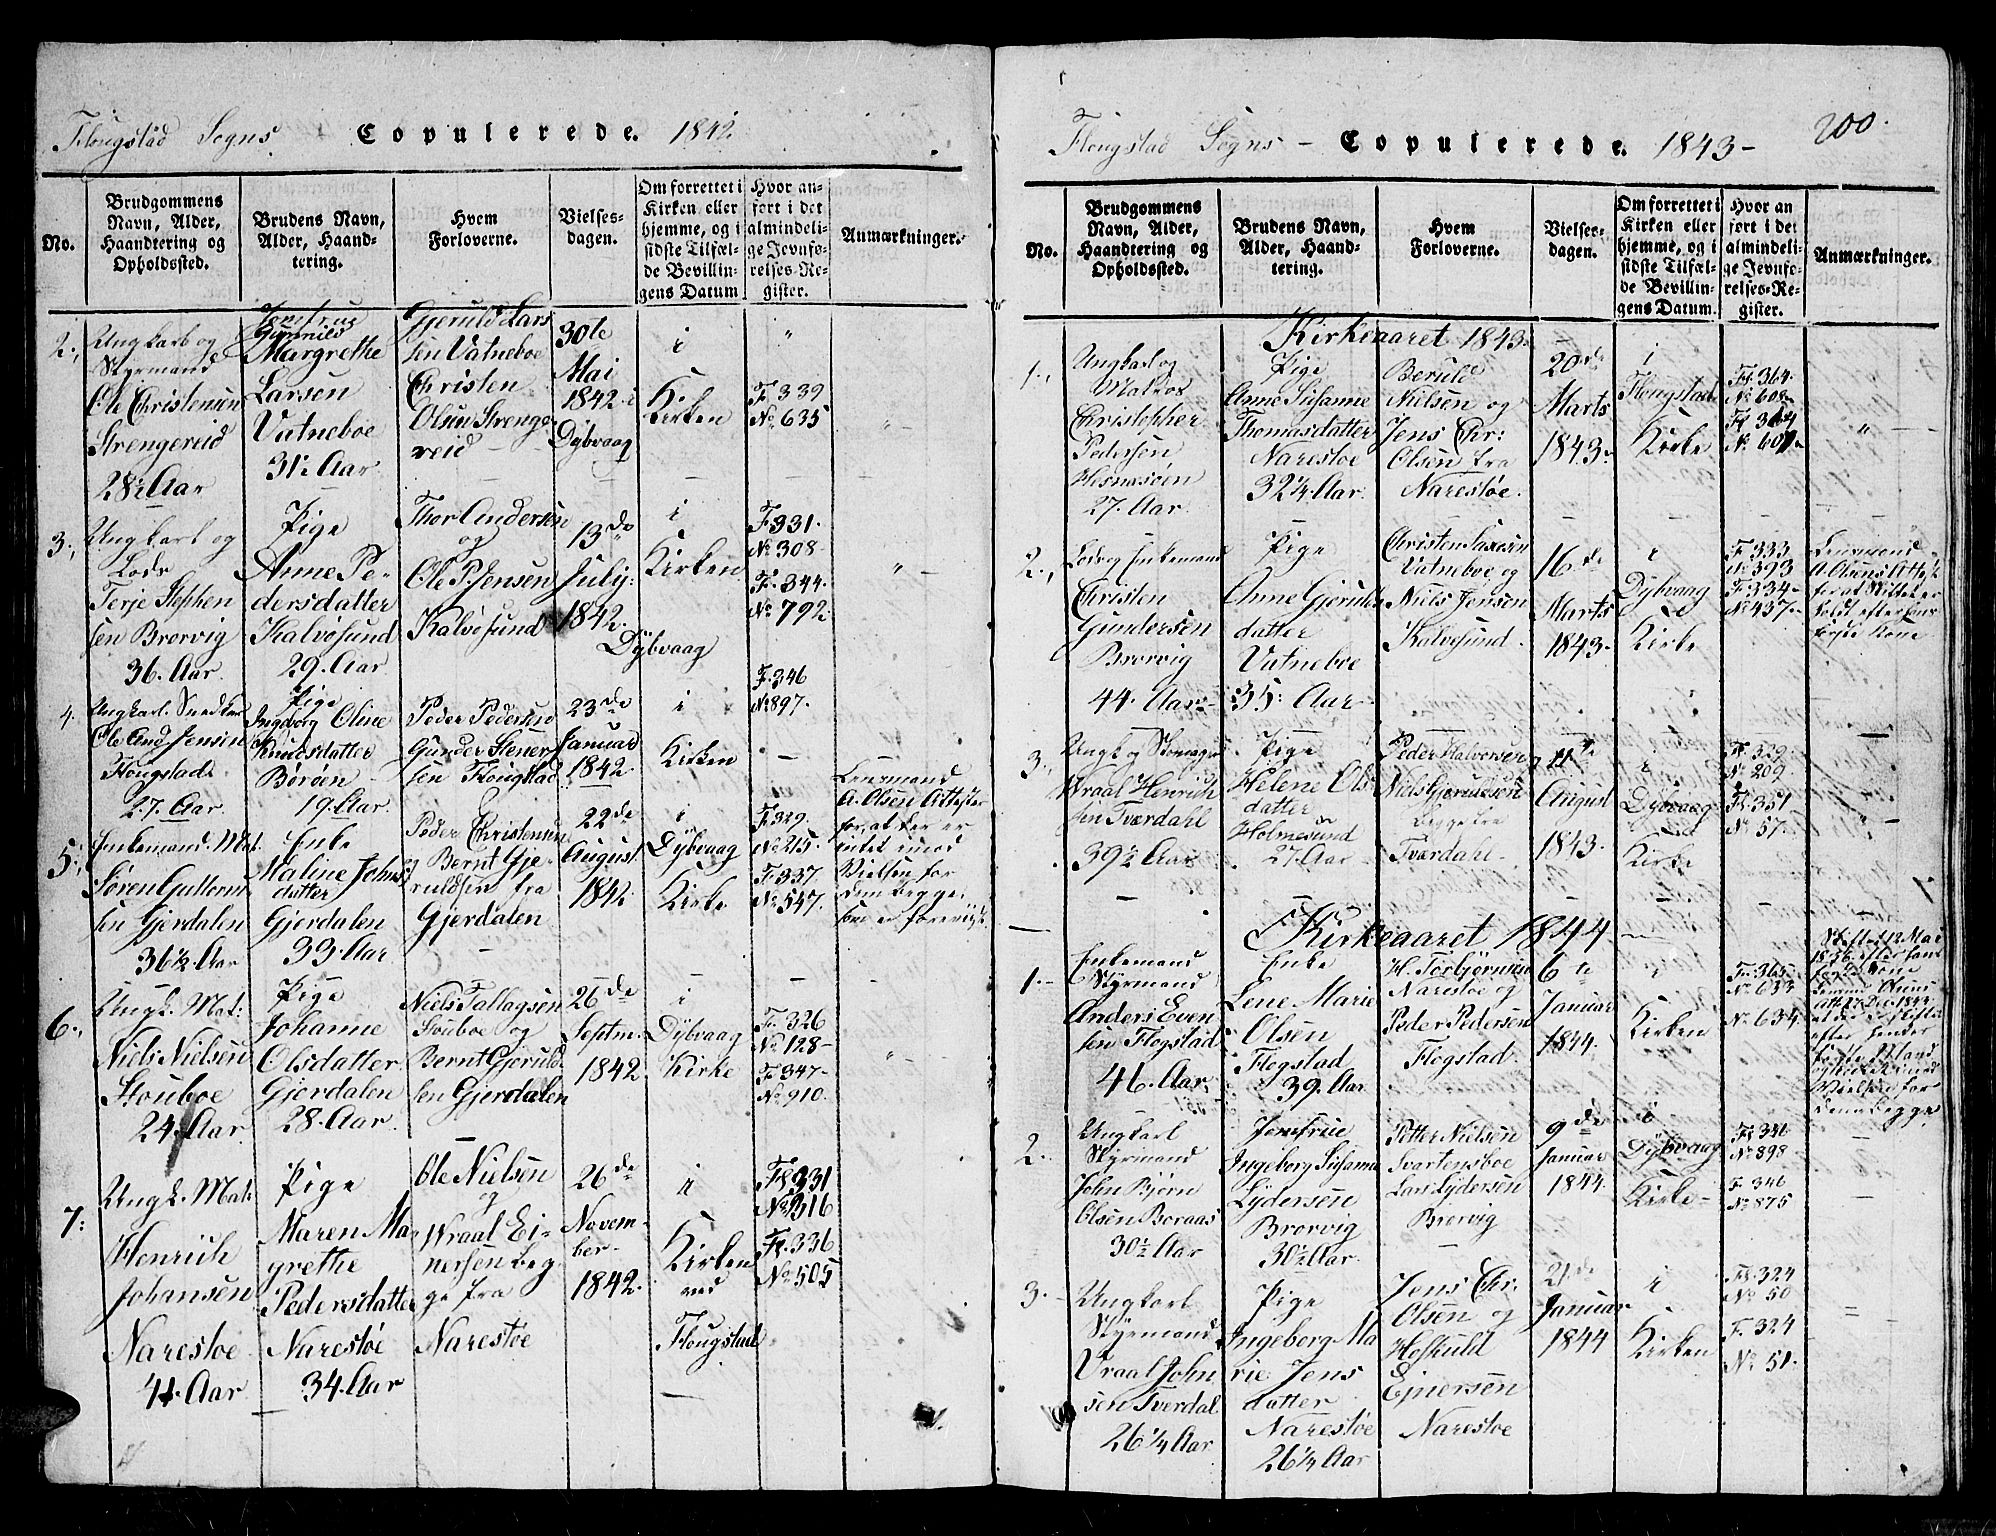 Flougstad Sogns Copulerede. 1842.
No.
Brudgommens Navn, Alder, Haandtering og Opholdssted.
Brudens Navn, Alder, Haandtering.
Hvem Forloverne.
Vielsesdagen.
Om forrettet i Kirken eller hjemme, og i sidste Tilfælde Bevillingens Datum
Hvor anført i det almindelige Jevnførelses-Register.
Anmærkninger.
2.,
Ungkarl og
Styrmand
Ole Christensen
Strengereid
28½ Aar
Jomfrue
Gunnild
Margrethe
Larsen
Vatneboe
31½ Aar
Gjeruld Lars
sen Vatneboe
Christen
Olsen Strenge
reid
30te
Mai
1842
Dybvaag
i
Kirken
F. 339
No 635
3.,
Ungkarl og
Lods
Terje Stephen
sen Brorvig
36. Aar
Pige
Anne Pe-
dersdatter
Kalvøsund
29. Aar
Thor Andersen
og
Ole P. Jensen
Kalvøsund
13de
July:
1842.
Dybvaag
i
Kirken
F. 331.
No 308.
F. 344.
No 792.
4.
Ungkarl. Snedker
Ole And Jensen
Flougstad.
27. Aar
Pige
Ingeborg Oline
Knudsdatter
Børøen
19. Aar
Peder Pedersen
Gunder Stener
sen Flougstad
23de
Januar
1842
i
Kirken
F. 346
No 897.
5.,
Enkemand. Mat.
Søren Guttorm
sen Gjerdalen
36½. Aar
Enke
Maline Johns
datter
Gjerdalen
33. Aar
Peder Christensen
Bernt Gje-
ruldsen fra
Gjerdalen
22de
August
1842
i
Dybvaag
Kirke
F. 329.
No 215.
F. 337.
No 547.
Lensmand
A. Olsen Attester
for, at der er
intet imod
Vielsen for
dem begge,
som er forevist
6.,
Ungk. Mat:
Niels Nielsen
Stouboe
24. Aar
Pige
Johanne
Olsdatter
Gjerdalen
28. Aar.
Niels Tallagsen
Stouboe og
Bernt Gjeruld
sen Gjerdalen
26de
Septm.
1842
i
Dybvaag
Kirke
F. 326
No 128-
F. 347-
No 910.
7:
Ungk. Mat:
Henrich
Johansen
Narestoe
41. Aar
Pige
Maren Ma
grethe
Pedersdatter
Narestøe
34. Aar
Ole Nielsen
og
Wraal Ei-
nersen beg
ge fra
Narestøe
26de
Novem-
ber-
1842.
i
Kirken
ved
Flougstad
Fl 331
No 316
Fl. 336
No 505
Flougstad Sogns - Copulerede. 1843-
200.
No.
Brudgommens Navn, Alder, Haandtering og Opholdssted.
Brudens Navn, Alder, Haandtering.
Hvem Forloverne.
Vielsesdagen.
Om forrettet i Kirken eller hjemme, og i sidste Tilfælde Bevillingens Datum.
Hvor anført i det almindelige Jevnførelses-Register.
Anmærkninger.
Kirkeaaret 1843.
1.,
Ungkarl og
Matros
Christopher
Pedersen
Hesnesøen
27. Aar.
Pige
Anne Susanne
Thomasdatter
Narestoe
32¼. Aar.
Beruld
Nielsen og
Jens Chr:
Olsen fra
Narestøe.
20de
Marts
1843.
i
Flougstad
Kirke
Fl. 364.
No 608.
Fl 364
No 607.
2.,
Lods og Enkemand
Christen
Gundersen
Brorvig
44. Aar
Pige
Anne Gjerulds
datter
Vatneboe
35: Aar
Christen Saxesen
Vatneboe og
Niels Jensen
Kalvesund.
16de
Marts
1843.
i
Dybvaag
Kirke
F 333
No 393
F. 334-
No 437-
Lensmand
A. Olsens Attest
for at Skiftet er
holdt efter hans
første Kone
3.,
Ungk og Skomager
Wraal Henrich
sen Tverdahl
39½ Aar
Pige
Helene Ols
datter
Holmesund
27. Aar
Peder Halvorsen og
Niels Gjeruldsen
begge fra
Tverdahl
11te
August
1843.
i
Dybvaag
Kirke
Fl 329.
No 209.
Fl. 351
No 57.
Kirkeaaret 1844
1.
Enkemand
Styrmand
Anders Even
sen Flogstad
46. Aar
Enke
Lene Marie
Olsen
Flogstad
39. Aar
H. Torbjørnsen
Narestoe og
Peder Pedersen
Flogstad.
6te
Januar
1844.
i
Kirken
F. 365.
No 633
No 634.
2.
Ungkarl
Styrmand
John Bjørn
Olsen Boraas
30½ Aar
Jomfrue
Ingeborg Susanna
Lydersen
Brorvig
30½ Aar
Petter Nielsen
Svartensboe
Lars Lydersen
Brorvig
9de
Januar
1844.
i
Dybvaag
Kirke-
Fl 346
No 898-
F. 346
No 875
3.
Ungkarl
Styrmand
Vraal John
sen Tverdal
26¼ Aar
Pige
Ingeborg Ma
rie Jens
datter
Narestøe
26¼ Aar
Jens Chr.
Olsen og
Hoskuld
Ejnersen
Narestoe
21de
Januar
1844
i
Kirken
Fl. 324
No 50
F. 324
No 51.